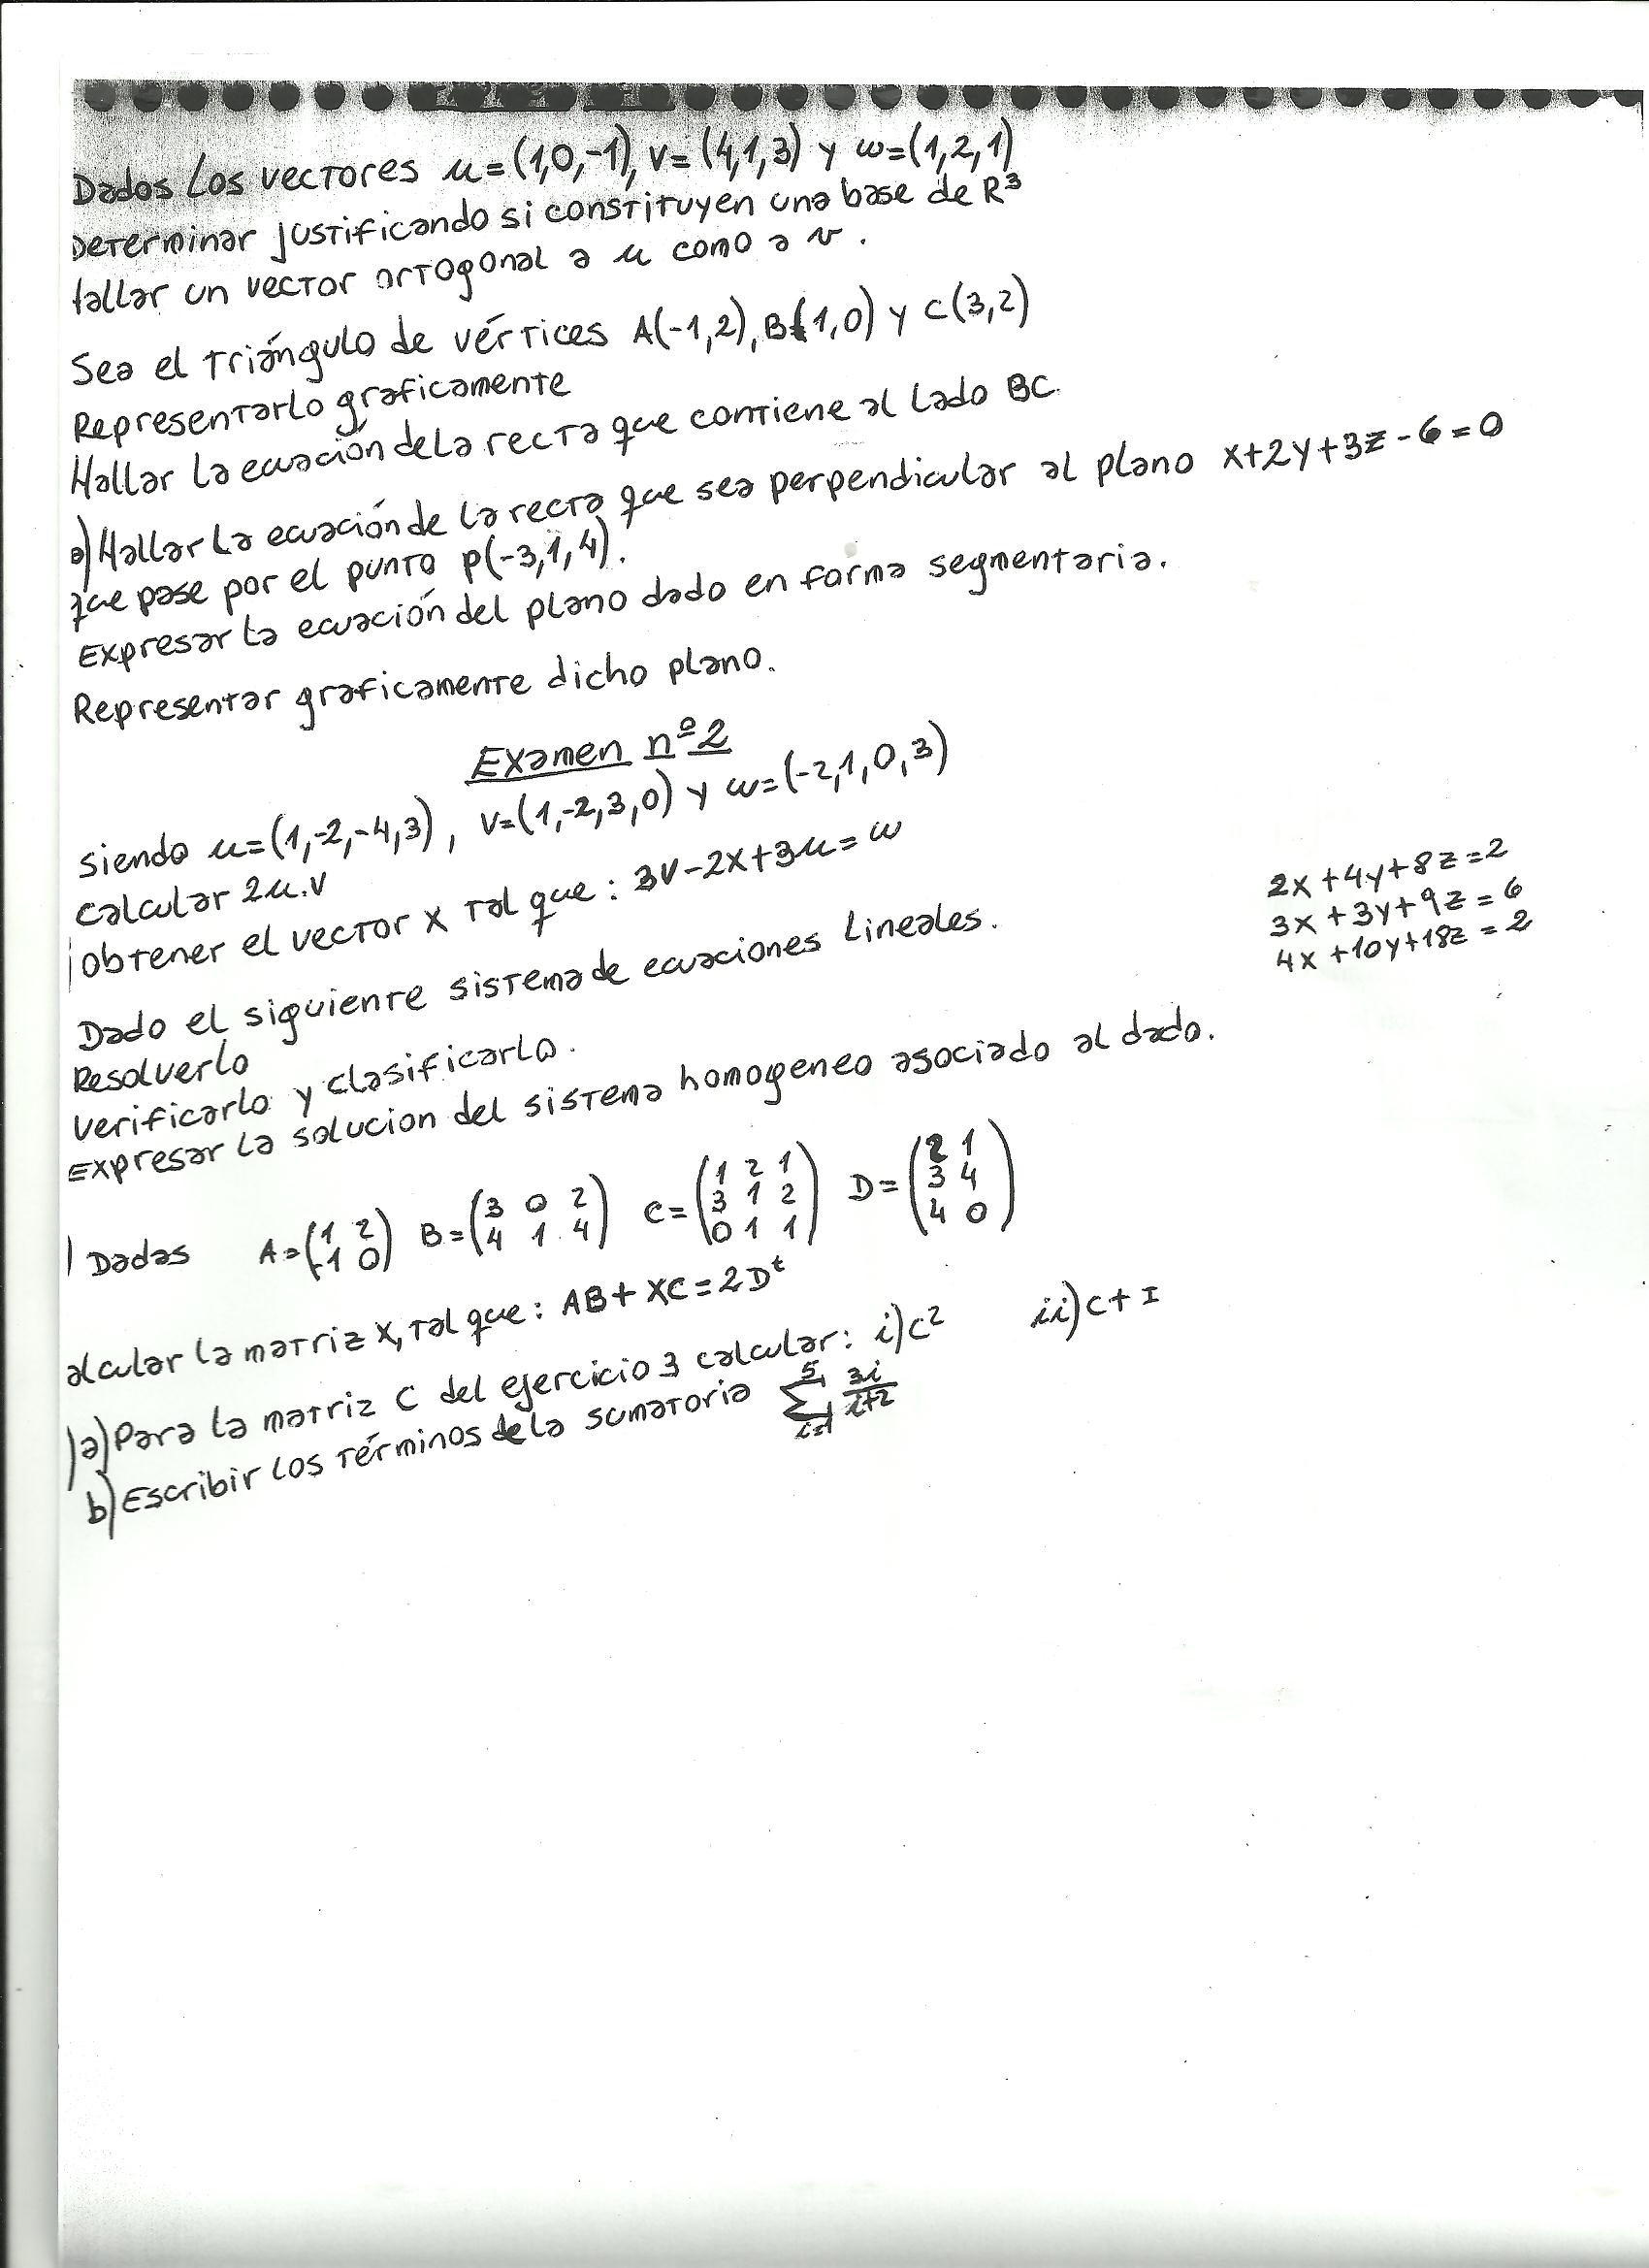 Dados los vectores u=(1,0,-1), v=(4,1,3) y w=(1,2,1)
Determinar justificando si constituyen una base de R³
hallar un vector ortogonal a u como a v.
Sea el triángulo de vértices A(-1,2), B(1,0) y C(3,2)
Representarlo graficamente
Hallar la ecuación de la recta que contiene al lado BC.
a) Hallar la ecuación de la recta que sea perpendicular al plano x+2y+3z-6=0
que pase por el punto P(-3,1,4).
Expresar la ecuación del plano dado en forma segmentaria.
Representar graficamente dicho plano.
Examen nº 2
siendo u=(1,-2,-4,3), v=(1,-2,3,0) y w=(-2,1,0,3)
calcular 2u.v
Obtener el vector x tal que: 3v-2x+3u=w
Dado el siguiente sistema de ecuaciones lineales.
2x+4y+8z=2
3x+3y+9z=6
4x+10y+18z=2
Resolverlo
verificarlo y clasificarlo.
Expresar la solucion del sistema homogeneo asociado al dado.
Dadas A=(1 2 / -1 0) B=(3 0 2 / 4 1 4) C=(1 2 1 / 3 1 2 / 0 1 1) D=(2 1 / 3 4 / 4 0)
alcular la matriz X, tal que: AB+XC=2Dᵗ
a) Para la matriz C del ejercicio 3 calcular: i) C² ii) C+I
b) Escribir los términos de la sumatoria ∑ i=1 5 3i/i+2